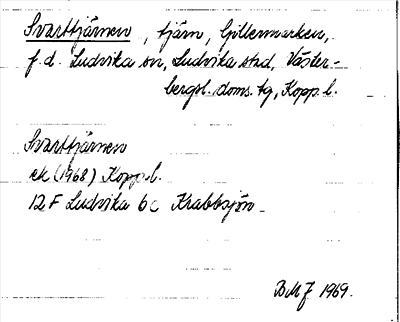 Svarttjärnen, tjärn, Gillermarken,
f.d. Ludvika sn, Ludvika stad, Väster-
bergsl. doms. tg, Kopp. l.
Svarttjärnen
ek (1968) Kopp. l.
12 F Ludvika bc Krabbsjön
BMJ 1969.